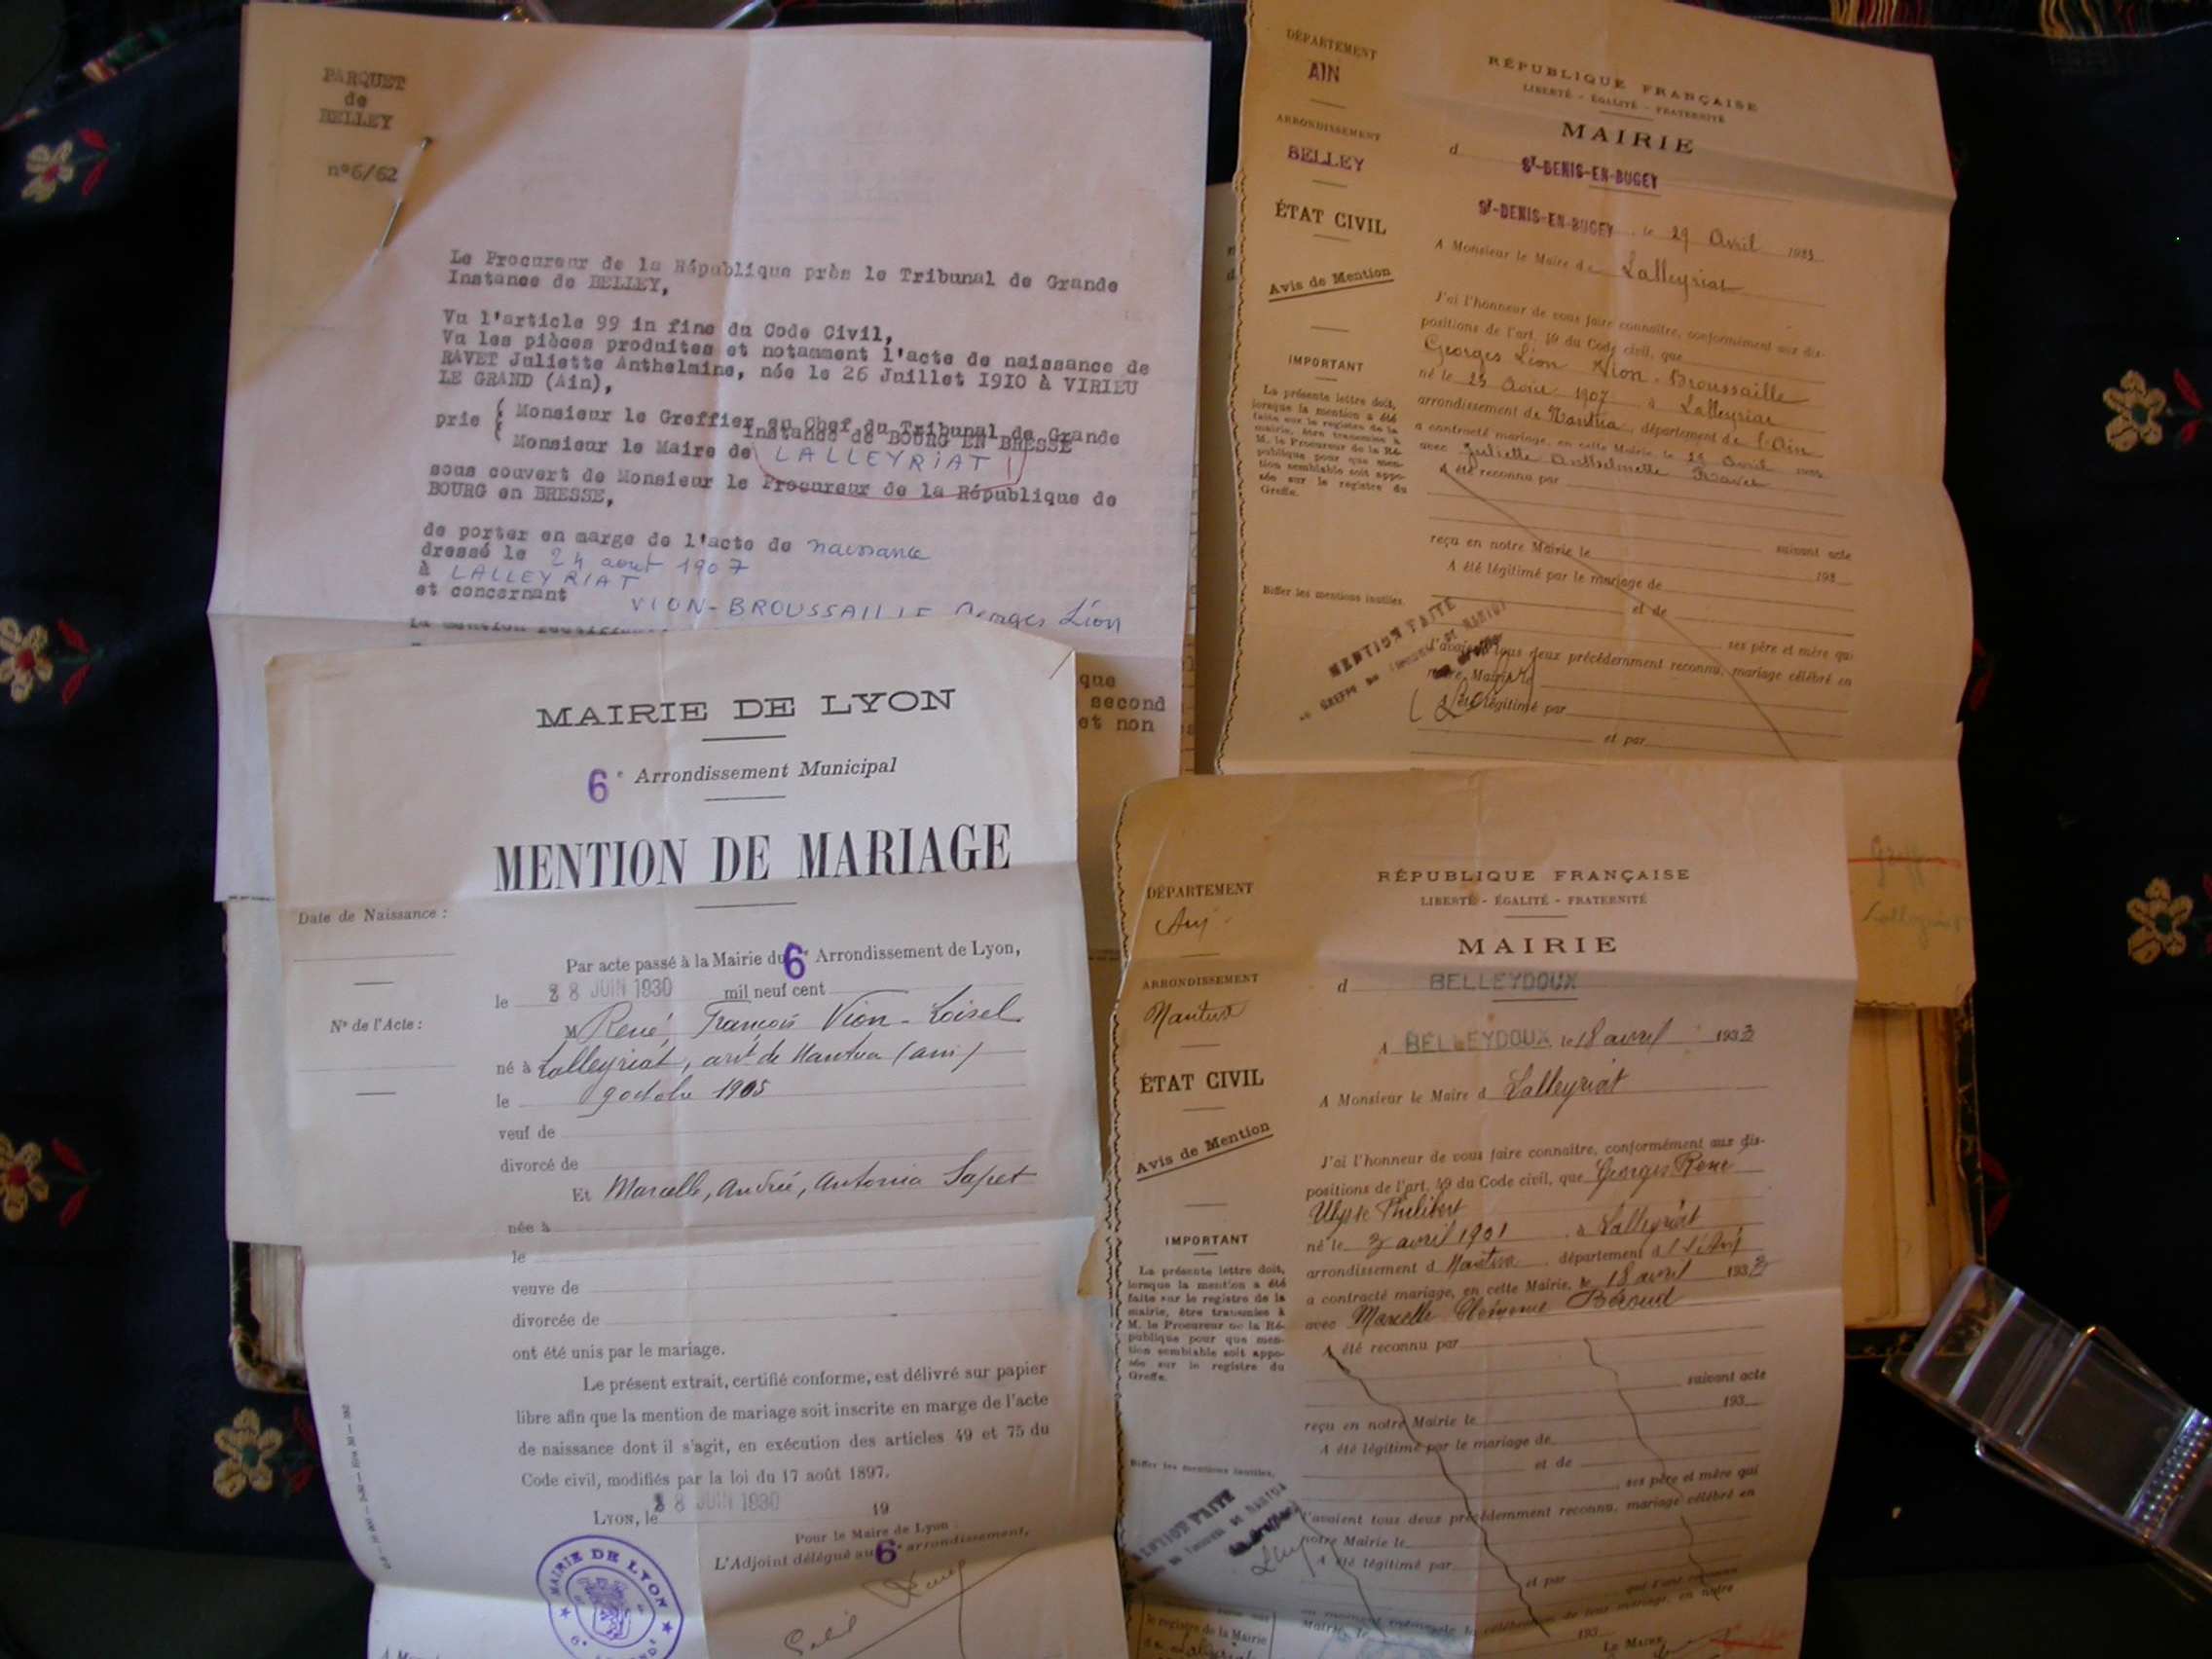 PARQUET
de
BELLEY
n°6/62
Le Procureur de la République près le Tribunal de Grande
Instance de BELLEY,
Vu l'article 99 in fine du Code Civil,
Vu les pièces produites et notamment l'acte de naissance de
RAVET Juliette Anthelmine, née le 26 Juillet 1910 à VIRIEU
LE GRAND (Ain),
prie { Monsieur le Greffier en Chef du Tribunal de Grande
Instance de BOURG EN BRESSE
Monsieur le Maire de LALLEYRIAT
sous couvert de Monsieur le Procureur de la République de
BOURG en BRESSE,
de porter en marge de l'acte de naissance
dressé le 24 aout 1907
à LALLEYRIAT
et concernant VION-BROUSSAILLE Georges Léon
que
second
et non
DÉPARTEMENT
AIN
ARRONDISSEMENT
BELLEY
ÉTAT CIVIL
Avis de Mention
IMPORTANT
La présente lettre doit,
lorsque la mention a été
faite sur le registre de la
mairie, être transmise à
M. le Procureur de la Ré-
publique pour que men-
tion semblable soit appo-
sée sur le registre du
Greffe.
Biffer les mentions inutiles.
RÉPUBLIQUE FRANÇAISE
LIBERTÉ - ÉGALITÉ - FRATERNITÉ
MAIRIE
d St-DENIS-EN-BUGEY
St-DENIS-EN-BUGEY, le 29 Avril 1933
A Monsieur le Maire de Lalleyriat
J'ai l'honneur de vous faire connaître, conformément aux dis-
positions de l'art. 49 du Code civil, que
Georges Léon Vion-Broussaille
né le 23 Août 1907 à Lalleyriat
arrondissement de Nantua, département de l'Ain
a contracté mariage, en cette Mairie, le 29 Avril
avec Juliette Anthelmette Ravet
A été reconnu par
suivant acte
reçu en notre Mairie le 193
A été légitimé par le mariage de
et de
ses père et mère qui
l'avaient tous deux précédemment reconnu, mariage célébré en
notre Mairie le
A été légitimé par
et par
MENTION FAITE
Greffe
Lalleyriat
MAIRIE DE LYON
6e Arrondissement Municipal
MENTION DE MARIAGE
Date de Naissance :
N° de l'Acte :
Par acte passé à la Mairie du 6e Arrondissement de Lyon,
le 28 JUIN 1930 mil neuf cent
M René, François Vion-Loisel
né à Lalleyriat, arrt de Nantua (ain)
le 9 octobre 1905
veuf de
divorcé de
Et Marcelle, Andrée, Antonia Sapet
née à
le
veuve de
divorcée de
ont été unis par le mariage.
Le présent extrait, certifié conforme, est délivré sur papier
libre afin que la mention de mariage soit inscrite en marge de l'acte
de naissance dont il s'agit, en exécution des articles 49 et 75 du
Code civil, modifiés par la loi du 17 août 1897.
LYON, le 28 JUIN 1930 19
Pour le Maire de Lyon :
L'Adjoint délégué au 6e arrondissement,
MAIRIE DE LYON
DÉPARTEMENT
Ain
ARRONDISSEMENT
Nantua
ÉTAT CIVIL
Avis de Mention
IMPORTANT
La présente lettre doit,
lorsque la mention a été
faite sur le registre de la
mairie, être transmise à
M. le Procureur de la Ré-
publique pour que men-
tion semblable soit appo-
sée sur le registre du
Greffe.
Biffer les mentions inutiles.
RÉPUBLIQUE FRANÇAISE
LIBERTÉ - ÉGALITÉ - FRATERNITÉ
MAIRIE
d BELLEYDOUX
A BELLEYDOUX, le 18 avril 1933
A Monsieur le Maire d Lalleyriat
J'ai l'honneur de vous faire connaître, conformément aux dis-
positions de l'art. 49 du Code civil, que Georges René
Ulysse Philibert
né le 3 avril 1901 à Lalleyriat
arrondissement d Nantua, département d l'Ain
a contracté mariage, en cette Mairie, le 18 avril 1933
avec Marcelle Béroud
A été reconnu par
suivant acte
193
reçu en notre Mairie le
A été légitimé par le mariage de
et de
ses père et mère qui
l'avaient tous deux précédemment reconnu, mariage célébré en
notre Mairie le
A été légitimé par
et par
MENTION FAITE
le registre de la Mairie
de Lalleyriat
Le Maire